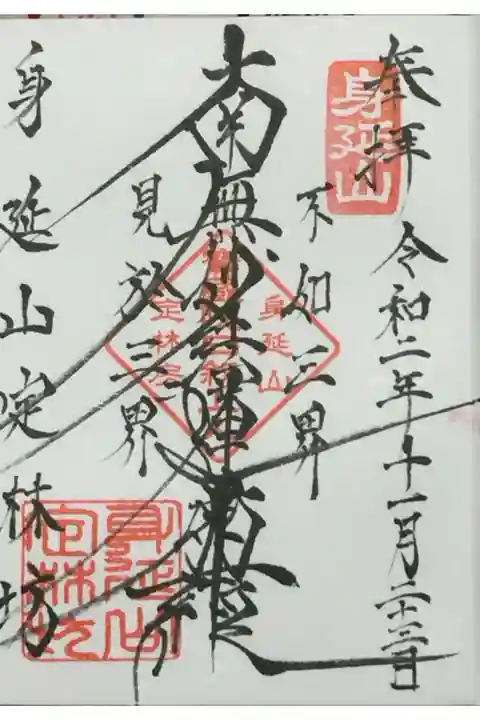 奉拝 令和二年十一月二十三日
身延山
不如三界
南無妙法蓮華経
見於三界
身延山
定林房
身延山定林坊
身延山
定林坊